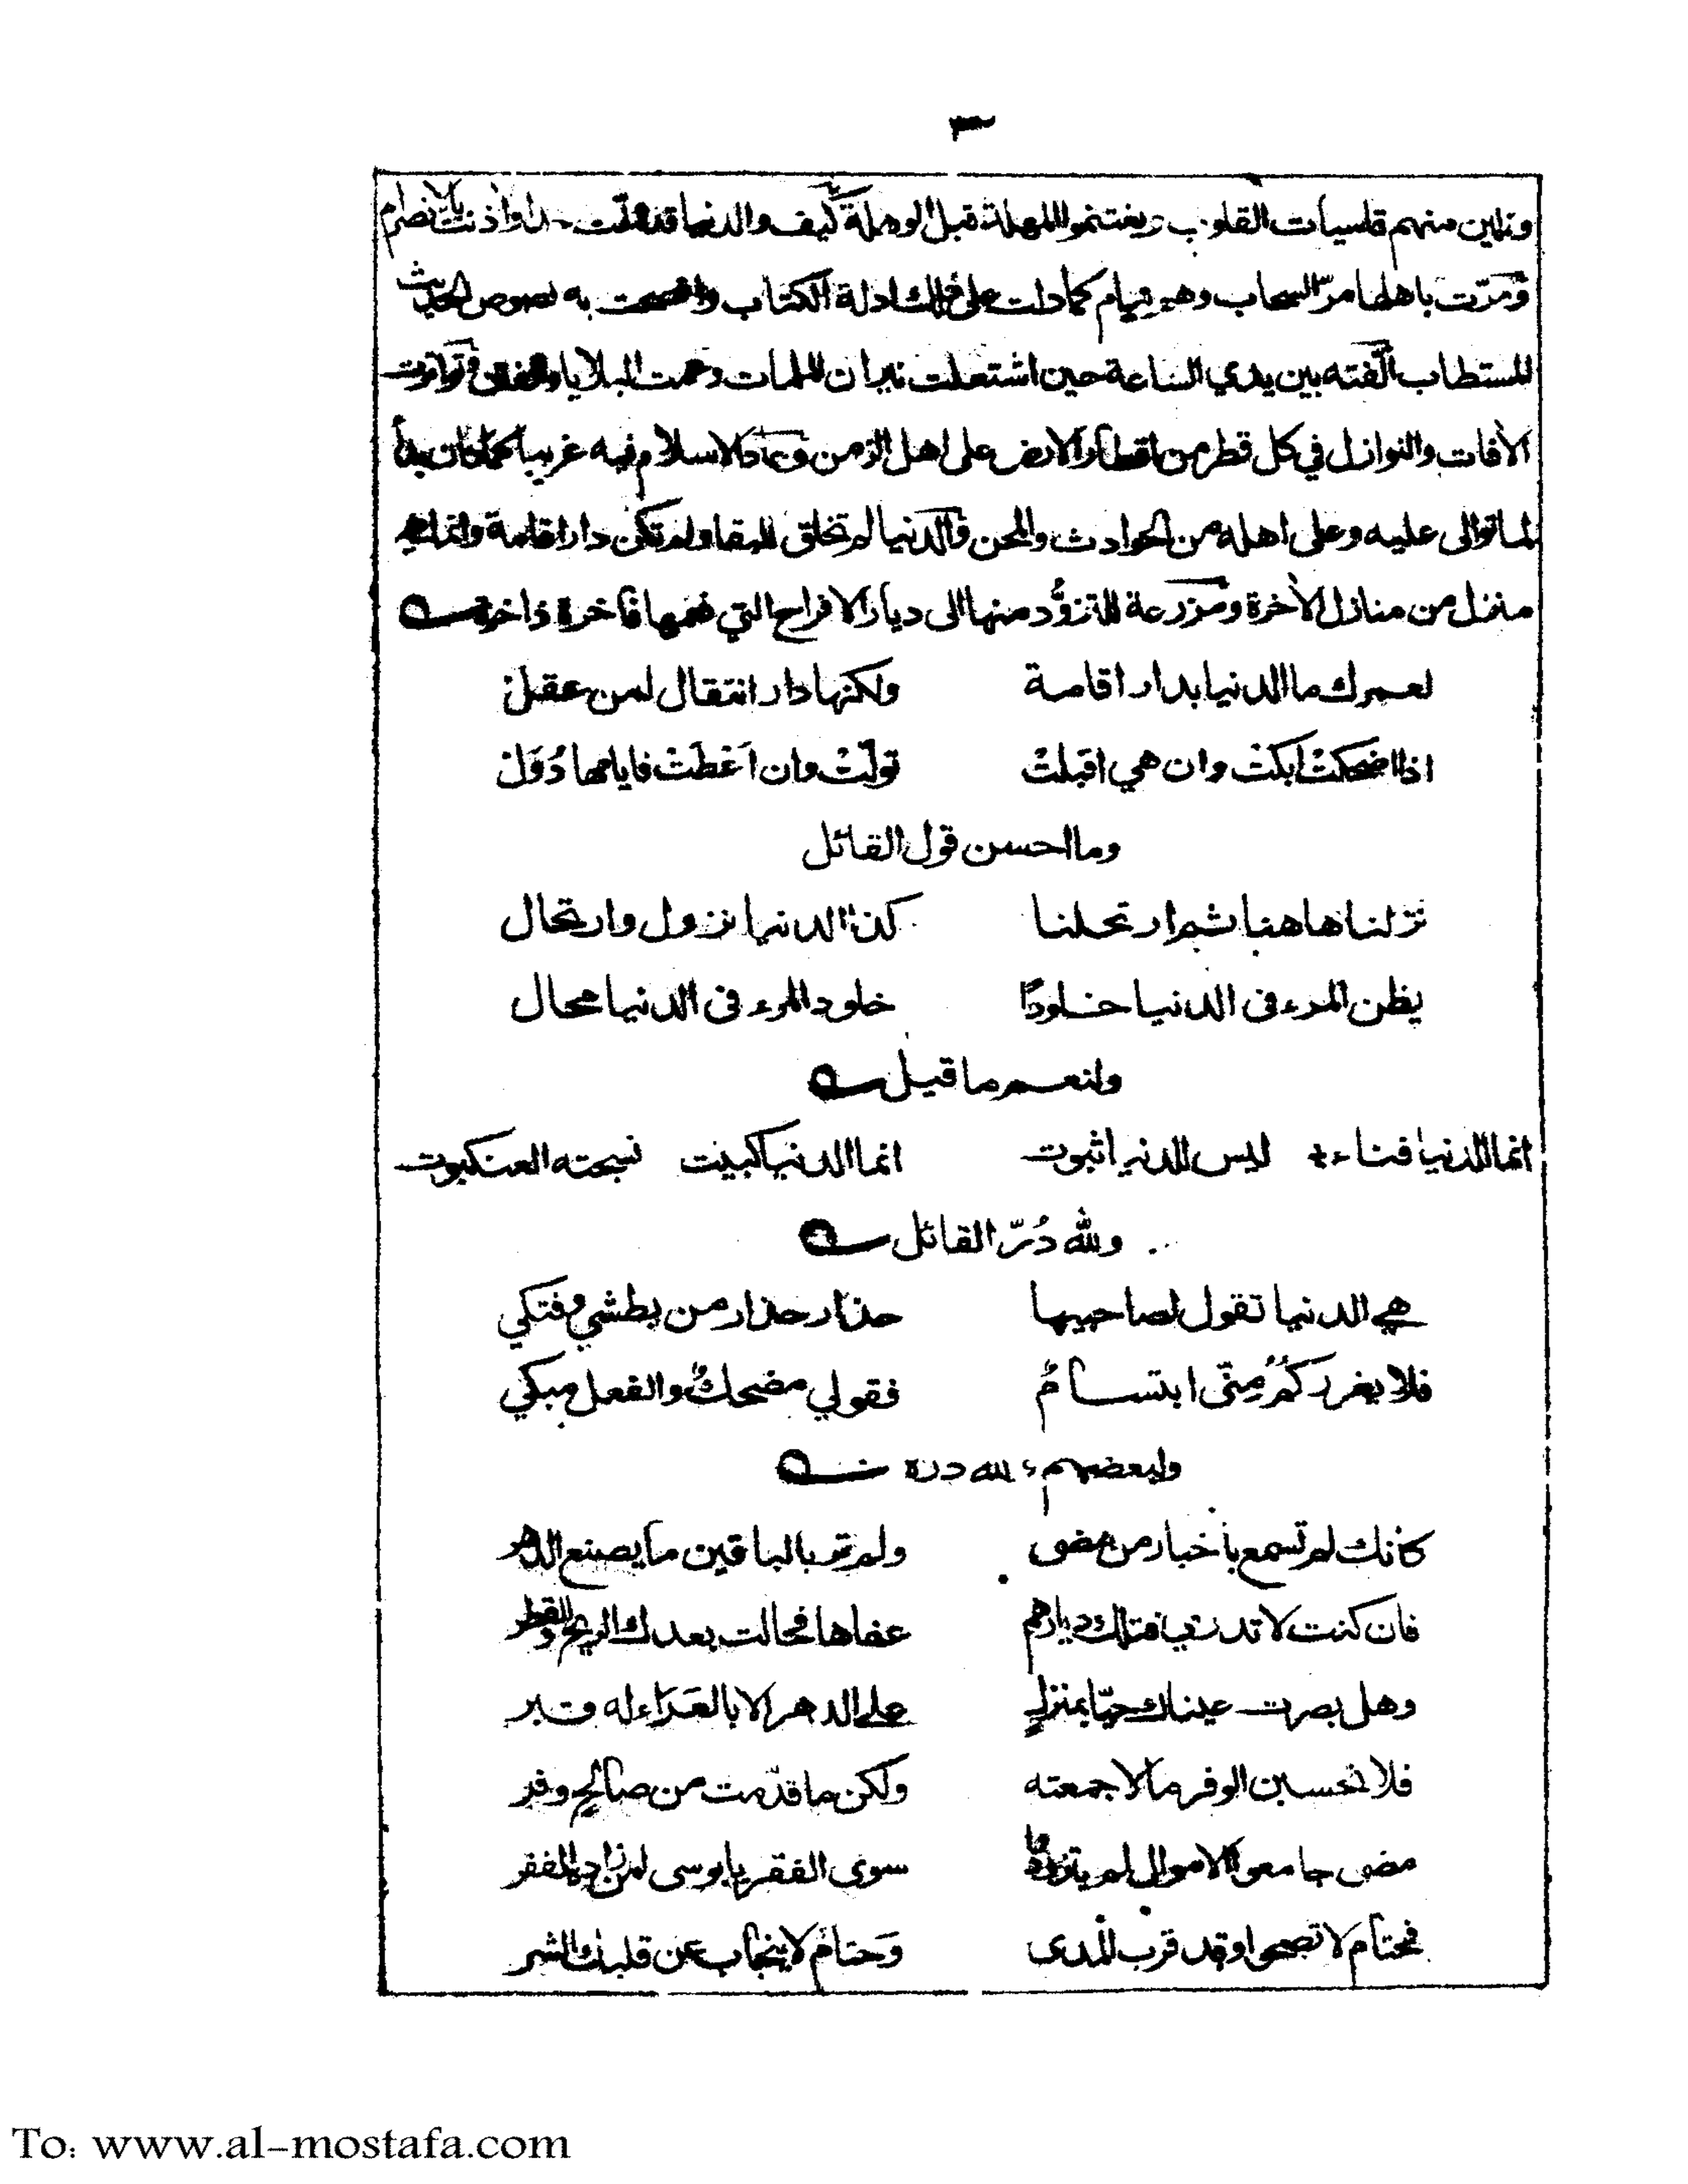 ٣
وتلين منهم قاسيات القلوب ويغتنموا المهلة قبل الوهلة كيف والدنيا قد ولّت حذاء واذنت بالانصرام
ومرّت باهلها مرّ السحاب وهم نيام كما دلت على ذلك ادلة الكتاب وافصحت به نصوص الحديث
المستطاب الّفته بين يدي الساعة حين اشتعلت نيران الملمات وعمت البلايا والفتن وتواترت
الآفات والنوازل في كل قطر من اقطار الارض على اهل الزمن وعاد الاسلام فيه غريبا كما كان بدأ
لما توالى عليه وعلى اهله من الحوادث والمحن والدنيا لم تخلق للبقا ولم تكن دار اقامة وانما هي
منزل من منازل الآخرة ومزرعة للتزوُّد منها الى ديار الافراح التي نعمها فاخرة ذاخرة
لعمرك ما الدنيا بدار اقامة ولكنها دار انتقال لمن عقلْ
اذا اضحكتْ ابكتْ وان هي اقبلتْ تولّتْ وان اَعْطَتْ فايامها دُوَلْ
وما احسن قول القائل
نزلنا هاهنا ثم ارتحلنا كذا الدنيا نزول وارتحال
يظن المرء في الدنيا خلودًا خلود المرء في الدنيا محال
ولنعم ما قيل
انما الدنيا فناء ليس للدنيا ثبوت انما الدنيا كبيت نسجته العنكبوت
ولله دُرّ القائل
هي الدنيا تقول لصاحبيها حذار حذار من بطشي وفتكي
فلا يغرركمُ مِنّى ابتسامٌ فقولي مضحكٌ والفعل مبكي
ولبعضهم لله درة
كأنك لم تسمع بأخبار من مضى ولم تر بالباقين ما يصنع الدهر
فان كنت لا تدري فتلك ديارهم عفاها فحالت بعدك الريح والقطر
وهل بصرت عيناك حيّا بمنزلٍ على الدهر الا بالعَرَاء له قبر
فلا تحسبن الوفر مالا جمعته ولكن ما قدّمت من صالح وفر
مضى جامعو الاموال لم يتزودوا سوى الفقر يا بوسى لمن زاده الفقر
فحتام لا تصحوا وقد قرب المدى وَحتام لا ينجاب عن قلبك الشر
To: www.al-mostafa.com